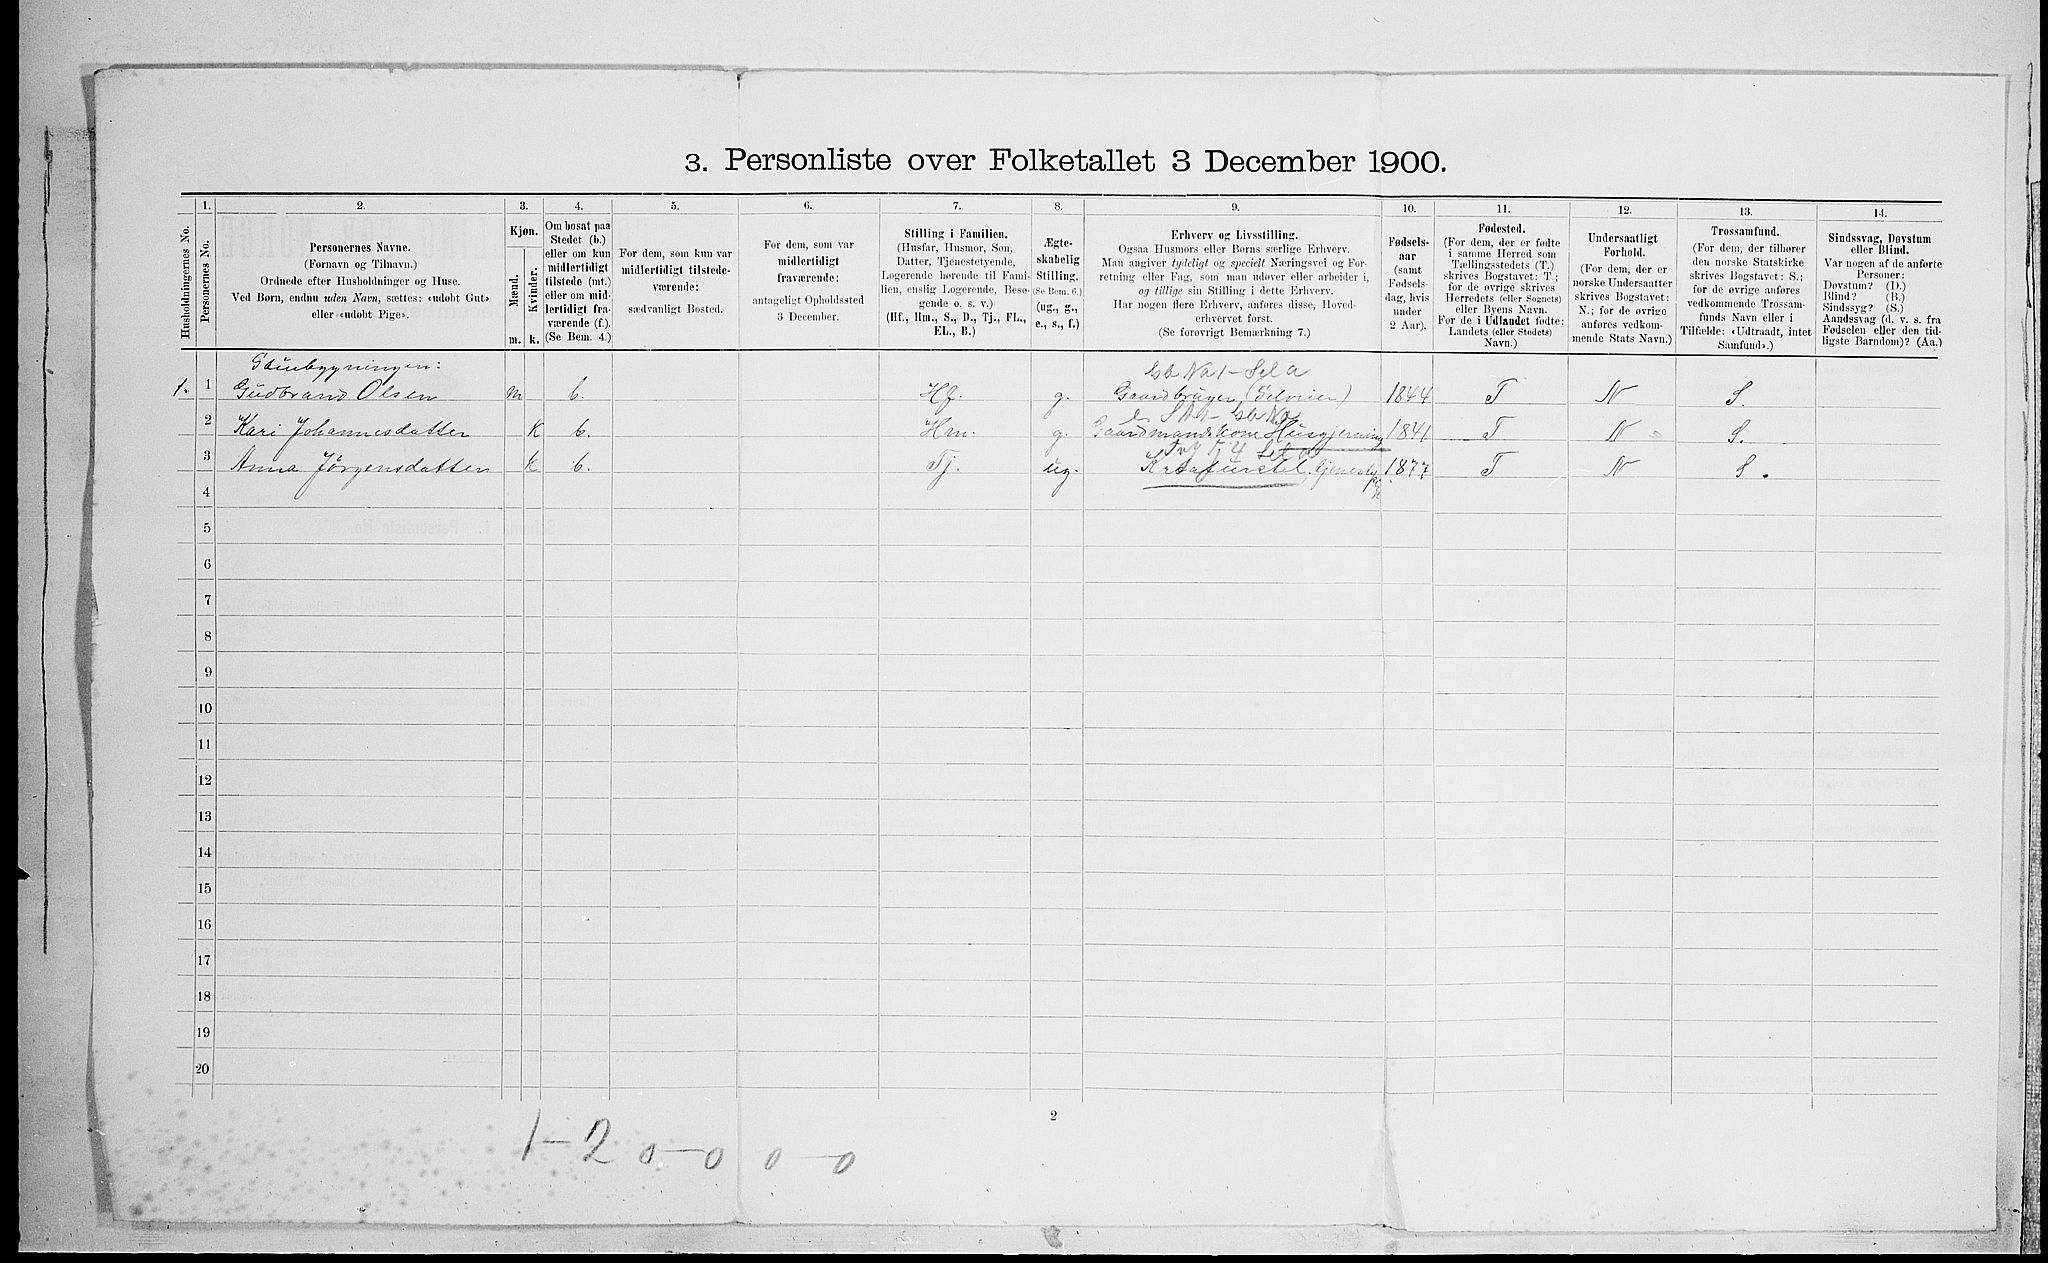 3. Personliste over Folketallet 3 December 1900.
Husholdningernes No.
1.
Personernes No.
2.
Personernes Navne.
(Fornavn og Tilnavn.)
Ordnede efter Husholdninger og Huse.
Ved Børn, endnu uden Navn, sættes: «udøbt Gut»
eller «udøbt Pige».
3.
Kjøn.
Mænd.
Kvinder.
m. k.
4.
Om bosat paa
Stedet (b.)
eller om kun
midlertidigt
tilstede (mt.)
eller om mid-
lertidigt fra-
værende (f.).
(Se Bem. 4.)
5.
For dem, som kun var
midlertidigt tilstede-
værende:
sædvanligt Bosted.
6.
For dem, som var
midlertidigt
fraværende:
antageligt Opholdssted
3 December.
7.
Stilling i Familien.
(Husfar, Husmor, Søn,
Datter, Tjenestetyende,
Logerende hørende til Fami-
lien, enslig Logerende, Besø-
gende o. s. v.)
(Hf., Hm., S., D., Tj., FL.,
EL., B.)
8.
Ægte-
skabelig
Stilling.
(Se Bem. 6.)
(ug., g.,
e., s., f.)
9.
Erhverv og Livsstilling.
Ogsaa Husmors eller Børns særlige Erhverv.
Man angiver tydeligt og specielt Næringsvei og For-
retning eller Fag, som man udøver eller arbeider i,
og tillige sin Stilling i dette Erhverv.
Har nogen flere Erhverv, anføres disse, Hoved-
erhvervet først.
(Se forøvrigt Bemærkning 7.)
10.
Fødsels-
aar
(samt
Fødsels-
dag, hvis
under
2 Aar).
11.
Fødested.
(For dem, der er fødte
i samme Herred som
Tællingsstedets (T.)
skrives Bogstavet: T.;
for de øvrige skrives
Herredets (eller Sognets)
eller Byens Navn.
For de i Udlandet fødte:
Landets (eller Stedets)
Navn.)
12.
Undersaatligt
Forhold.
(For dem, der er
norske Undersaatter
skrives Bogstavet:
N.; for de øvrige
anføres vedkom-
mende Stats Navn.)
13.
Trossamfund.
(For dem, der tilhører
den norske Statskirke
skrives Bogstavet: S.;
for de øvrige anføres
vedkommende Trossam-
funds Navn eller i
Tilfælde: «Udtraadt, intet
Samfund».)
14.
Sindssvag, Døvstum
eller Blind.
Var nogen af de anførte
Personer:
Døvstum? (D.)
Blind? (B.)
Sindssyg? (S.)
Aandssvag (d. v. s. fra
Fødselen eller den tid-
ligste Barndom)? (Aa.)
Stuebygningen: Gb No 1 - Sel a
1. 1 Gudbrand Olsen m b. Hf. g. Gaardbruger (Selveier) 1844 T N S.
2 Kari Johannesdatter K b. Hm. g. Gaardmandskone Husgjerning 1841 T N S.
3 Anna Jørgensdatter K b. Tj. ug. Kreaturstel 1877 T N S.
4
5
6
7
8
9
10
11
12
13
14
15
16
17
18
19
20
2
1-2 0-0 0-0